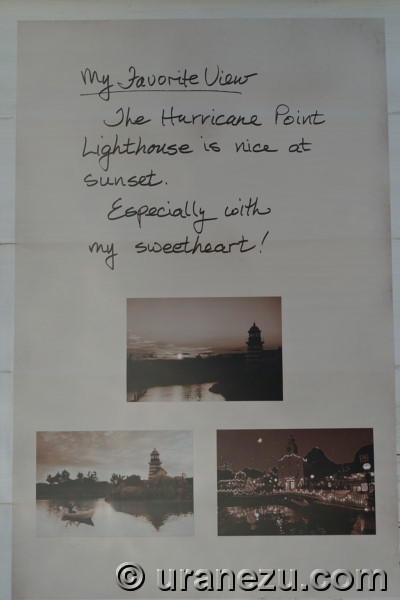 My Favorite View
The Hurricane Point
Lighthouse is nice at
sunset.
Especially with
my sweetheart!
© uranezu.com